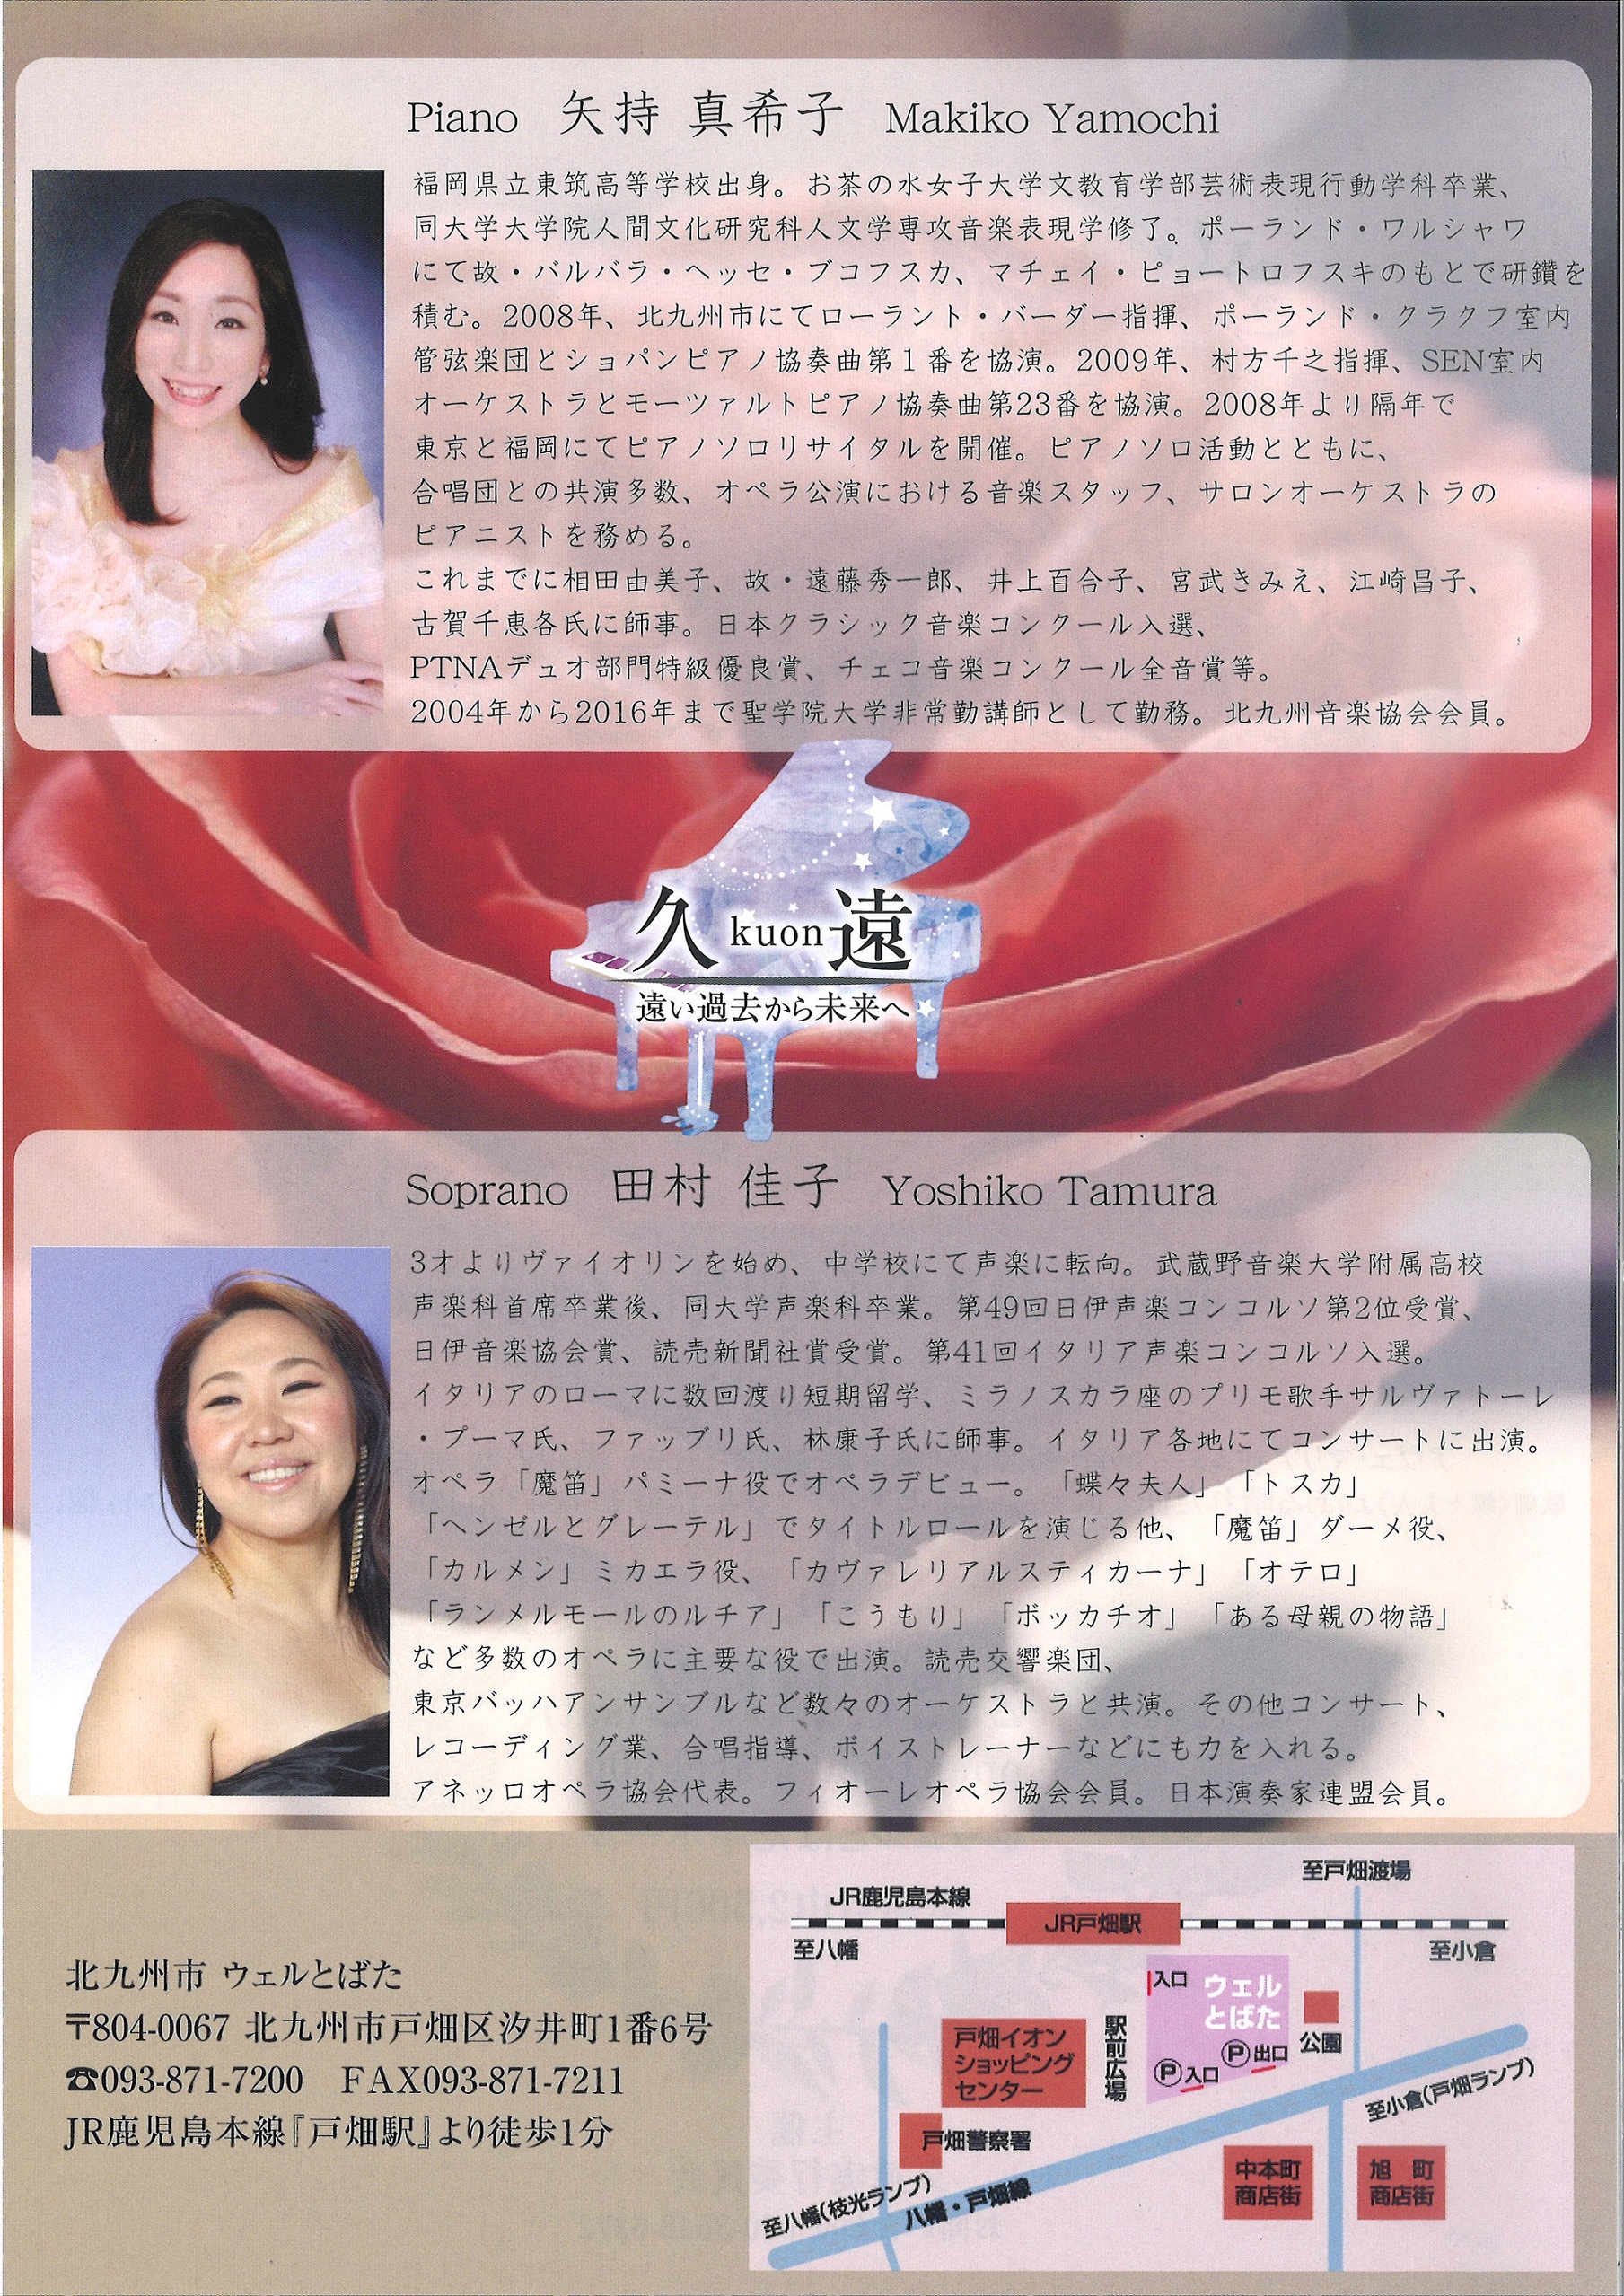 Piano 矢持 真希子 Makiko Yamochi
福岡県立東筑高等学校出身。お茶の水女子大学文教育学部芸術表現行動学科卒業、
同大学大学院人間文化研究科人文学専攻音楽表現学修了。ポーランド・ワルシャワ
にて故・バルバラ・ヘッセ・ブコフスカ、マチェイ・ピョートロフスキのもとで研鑽を
積む。2008年、北九州市にてローラント・バーダー指揮、ポーランド・クラクフ室内
管弦楽団とショパンピアノ協奏曲第１番を協演。2009年、村方千之指揮、SEN室内
オーケストラとモーツァルトピアノ協奏曲第23番を協演。2008年より隔年で
東京と福岡にてピアノソロリサイタルを開催。ピアノソロ活動とともに、
合唱団との共演多数、オペラ公演における音楽スタッフ、サロンオーケストラの
ピアニストを務める。
これまでに相田由美子、故・遠藤秀一郎、井上百合子、宮武きみえ、江崎昌子、
古賀千恵各氏に師事。日本クラシック音楽コンクール入選、
PTNAデュオ部門特級優良賞、チェコ音楽コンクール全音賞等。
2004年から2016年まで聖学院大学非常勤講師として勤務。北九州音楽協会会員。
久 kuon 遠
遠い過去から未来へ
Soprano 田村 佳子 Yoshiko Tamura
3才よりヴァイオリンを始め、中学校にて声楽に転向。武蔵野音楽大学附属高校
声楽科首席卒業後、同大学声楽科卒業。第49回日伊声楽コンコルソ第2位受賞、
日伊音楽協会賞、読売新聞社賞受賞。第41回イタリア声楽コンコルソ入選。
イタリアのローマに数回渡り短期留学、ミラノスカラ座のプリモ歌手サルヴァトーレ
・プーマ氏、ファッブリ氏、林康子氏に師事。イタリア各地にてコンサートに出演。
オペラ「魔笛」パミーナ役でオペラデビュー。「蝶々夫人」「トスカ」
「ヘンゼルとグレーテル」でタイトルロールを演じる他、「魔笛」ダーメ役、
「カルメン」ミカエラ役、「カヴァレリアルスティカーナ」「オテロ」
「ランメルモールのルチア」「こうもり」「ボッカチオ」「ある母親の物語」
など多数のオペラに主要な役で出演。読売交響楽団、
東京バッハアンサンブルなど数々のオーケストラと共演。その他コンサート、
レコーディング業、合唱指導、ボイストレーナーなどにも力を入れる。
アネッロオペラ協会代表。フィオーレオペラ協会会員。日本演奏家連盟会員。
北九州市 ウェルとばた
〒804-0067 北九州市戸畑区汐井町1番6号
☎093-871-7200 FAX093-871-7211
JR鹿児島本線『戸畑駅』より徒歩1分
至戸畑渡場
JR鹿児島本線
JR戸畑駅
至八幡
至小倉
入口
ウェル
とばた
公園
P入口
P出口
駅前広場
戸畑イオン
ショッピング
センター
戸畑警察署
至小倉(戸畑ランプ)
至八幡(枝光ランプ)
八幡・戸畑線
中本町
商店街
旭 町
商店街